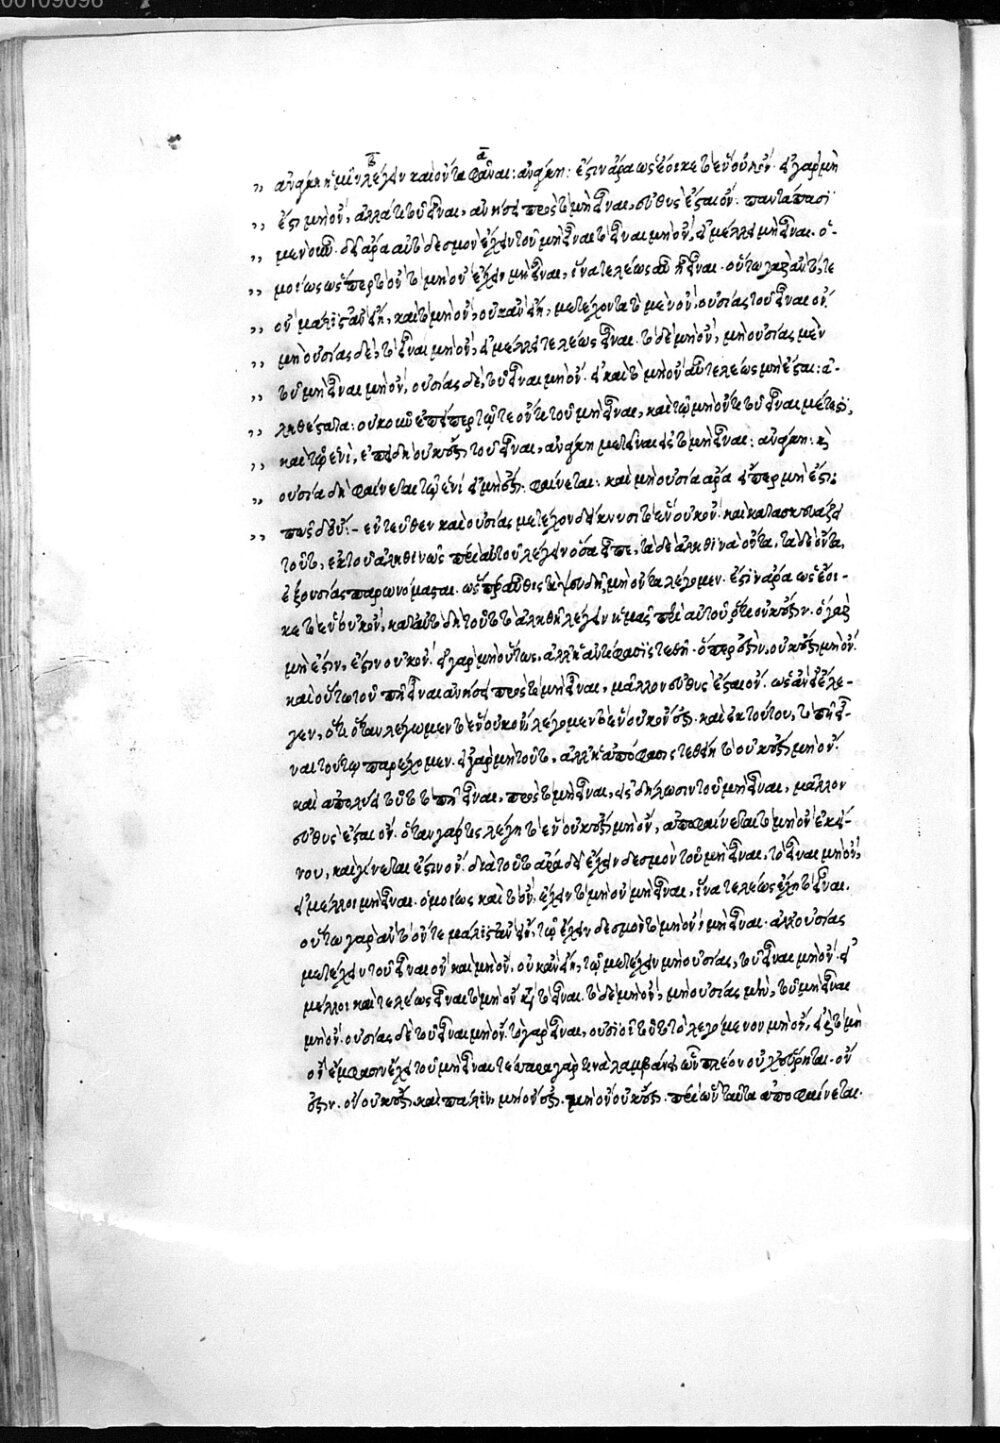 00109098
β α
,, ἀνάγκη ἡμῖν λέγειν καὶ ὄντα φάναι: ἀνάγκη: ἔστιν ἄρα ὡς ἔοικε τὸ ἓν οὐκ ὄν. εἰ γὰρ μὴ
,, ἔσται μὴ ὄν, ἀλλά τι τοῦ εἶναι, ἀνήσει πρὸς τὸ μὴ εἶναι, εὐθὺς ἔσται ὄν. παντάπασι
,, μὲν οὖν. δεῖ ἄρα αὐτὸ δεσμὸν ἔχειν τοῦ μὴ εἶναι τὸ εἶναι μὴ ὄν, εἰ μέλλει μὴ εἶναι. ὁ-
,, μοίως ὥσπερ τὸ ὂν τὸ μὴ ὂν ἔχειν μὴ εἶναι, ἵνα τελέως αὖ ᾖ εἶναι. οὕτω γὰρ ἂν τό, τε
,, ὂν μάλιστ' ἂν εἴη, καὶ τὸ μὴ ὄν, οὐκ ἂν εἴη, μετέχοντα τὸ μὲν ὄν, οὐσίας τοῦ εἶναι ὄν.
,, μὴ οὐσίας δὲ, τὸ εἶναι μὴ ὄν, εἰ μέλλει τελέως εἶναι. τὸ δὲ μὴ ὄν, μὴ οὐσίας μὲν
,, τοῦ μὴ εἶναι μὴ ὄν, οὐσίας δὲ, τοῦ εἶναι μὴ ὄν. εἰ καὶ τὸ μὴ ὂν αὖ τελέως μὴ ἔσται: ἀ-
,, ληθέστατα: οὐκοῦν ἐπείπερ τῷ τε ὄντι τοῦ μὴ εἶναι, καὶ τῷ μὴ ὄντι τοῦ εἶναι μέτεστι,
,, καὶ τῷ ἑνί, ἐπειδὴ οὐκ ἔστι τοῦ εἶναι, ἀνάγκη μετεῖναι εἰς τὸ μὴ εἶναι: ἀνάγκη: καὶ
,, οὐσία δὴ φαίνεται τῷ ἑνί εἰ μὴ ἔστι. φαίνεται: καὶ μὴ οὐσία ἄρα εἴπερ μὴ ἔστι:
,, πῶς δ' οὔ:- ἐντεῦθεν καὶ οὐσίας μετέχον δείκνυσι τὸ ἓν οὐκ ὄν. καὶ κατασκευάζει
τοῦτο, ἐκ τοῦ ἀληθινῶς περὶ αὐτοῦ λέγειν ὅσα εἶπε, τὰ δὲ ἀληθινὰ ὄντα, τὰ δὲ ὄντα,
ἐξ οὐσίας παρωνόμασται. ὥσπερ αὖθις τὰ ψευδῆ, μὴ ὄντα λέγομεν. ἔστιν ἄρα ὡς ἔοι-
κε τὸ ἓν οὐκ ὄν, κατ' αὐτὸ δὴ τοῦτο τὸ ἀληθῆ λέγειν ἡμᾶς περὶ αὐτοῦ ὅτι οὐκ ἔστιν. ὃ γὰρ
μὴ ἔστιν, ἔστιν οὐκ ὄν. εἰ γὰρ μὴ οὕτως, ἀλλ' ἡ ἀντίφασις τεθῇ. ὅπερ ἐστὶν, οὐκ ἔστι μὴ ὄν.
καὶ οὕτω τοῦ πῇ εἶναι ἀνήσει πρὸς τὸ μὴ εἶναι, μᾶλλον εὐθὺς ἔσται ὄν. ὡς ἂν εἰ ἔλε-
γεν, ὅτι ὅταν λέγωμεν τὸ ἓν οὐκ ὄν, λέγομεν τὸ ἓν οὐκ ὂν ἔστι. καὶ ἐκ τούτου, τὸ πῇ εἶ-
ναι τούτῳ παρέχομεν. εἰ γὰρ μὴ τοῦτο, ἀλλ' ἡ ἀπόφασις τεθῇ τὸ οὐκ ἔστι μὴ ὄν.
καὶ ἀπολύει τοῦτο τὸ πῇ εἶναι, πρὸς τὸ μὴ εἶναι, εἰς δήλωσιν τοῦ μὴ εἶναι, μᾶλλον
εὐθὺς ἔσται ὄν. ὅταν γάρ τις λέγῃ τὸ ἓν οὐκ ἔστι μὴ ὄν, ἀποφαίνεται τὸ μὴ ὂν ἐκεί-
νου, καὶ γίνεται ἔστιν ὄν. διὰ τοῦτο ἄρα δεῖ ἔχειν δεσμὸν τοῦ μὴ εἶναι, τὸ εἶναι μὴ ὄν,
εἰ μέλλοι μὴ εἶναι. ὁμοίως καὶ τὸ ὄν, ἔχειν τὸ μὴ ὂν μὴ εἶναι, ἵνα τελέως ἔχῃ τὸ εἶναι.
οὕτω γὰρ ἂν τὸ ὄν τε μάλιστ' ἂν εἴη, τῷ ἔχειν δεσμὸν τὸ μὴ ὄν, μὴ εἶναι. ἀλλ' οὐσίας
μετέχειν τοῦ εἶναι ὂν καὶ μὴ ὄν. οὐκ ἂν εἴη, τῷ μετέχειν μὴ οὐσίας, τοῦ εἶναι μὴ ὄν. εἰ
μέλλοι καὶ τελέως εἶναι τὸ μὴ ὂν καὶ τὸ εἶναι. τὸ δὲ μὴ ὄν, μὴ οὐσίας μὴν, τοῦ μὴ εἶναι
μὴ ὄν. οὐσίας δὲ τοῦ εἶναι μὴ ὄν. τὸ γὰρ εἶναι, οὐσιοῖ τοῦτο τὸ λεγόμενον μὴ ὄν,
ὂν ἔμφασιν ἔχει τοῦ μὴ εἶναι
ἔστιν. ὂν οὐκ ἔστι. καὶ πάλιν, μὴ ὂν ἔστι. μὴ ὂν οὐκ ἔστι. περὶ ὧν ταῦτα ἀποφαίνεται.